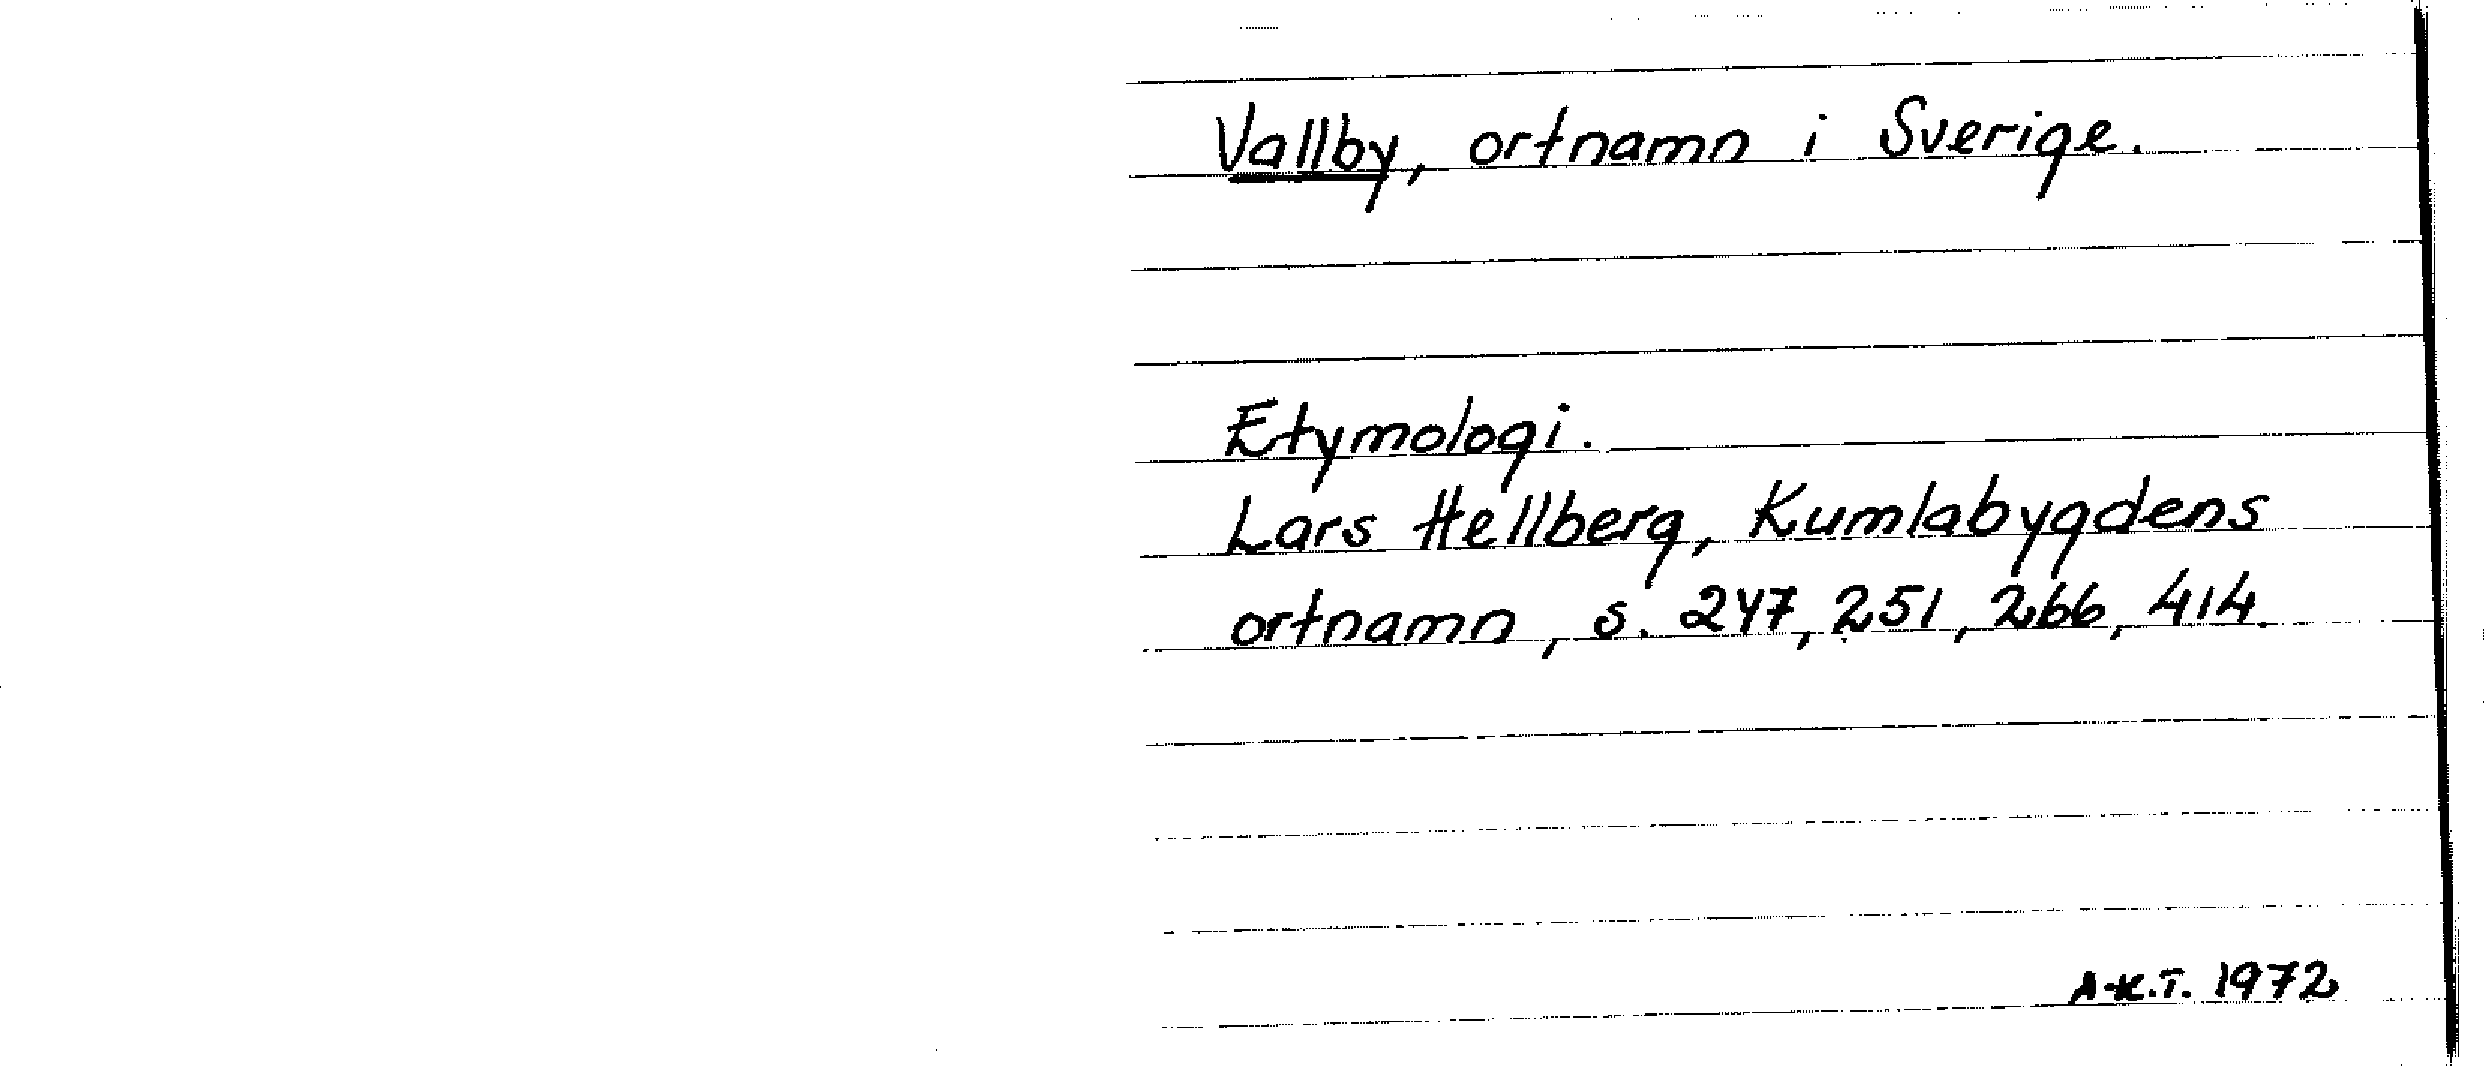 Vallby, ortnamn i Sverige.
Etymologi.
Lars Hellberg, Kumlabygdens
ortnamn, s. 247, 251, 266, 414.
A-K.T. 1972